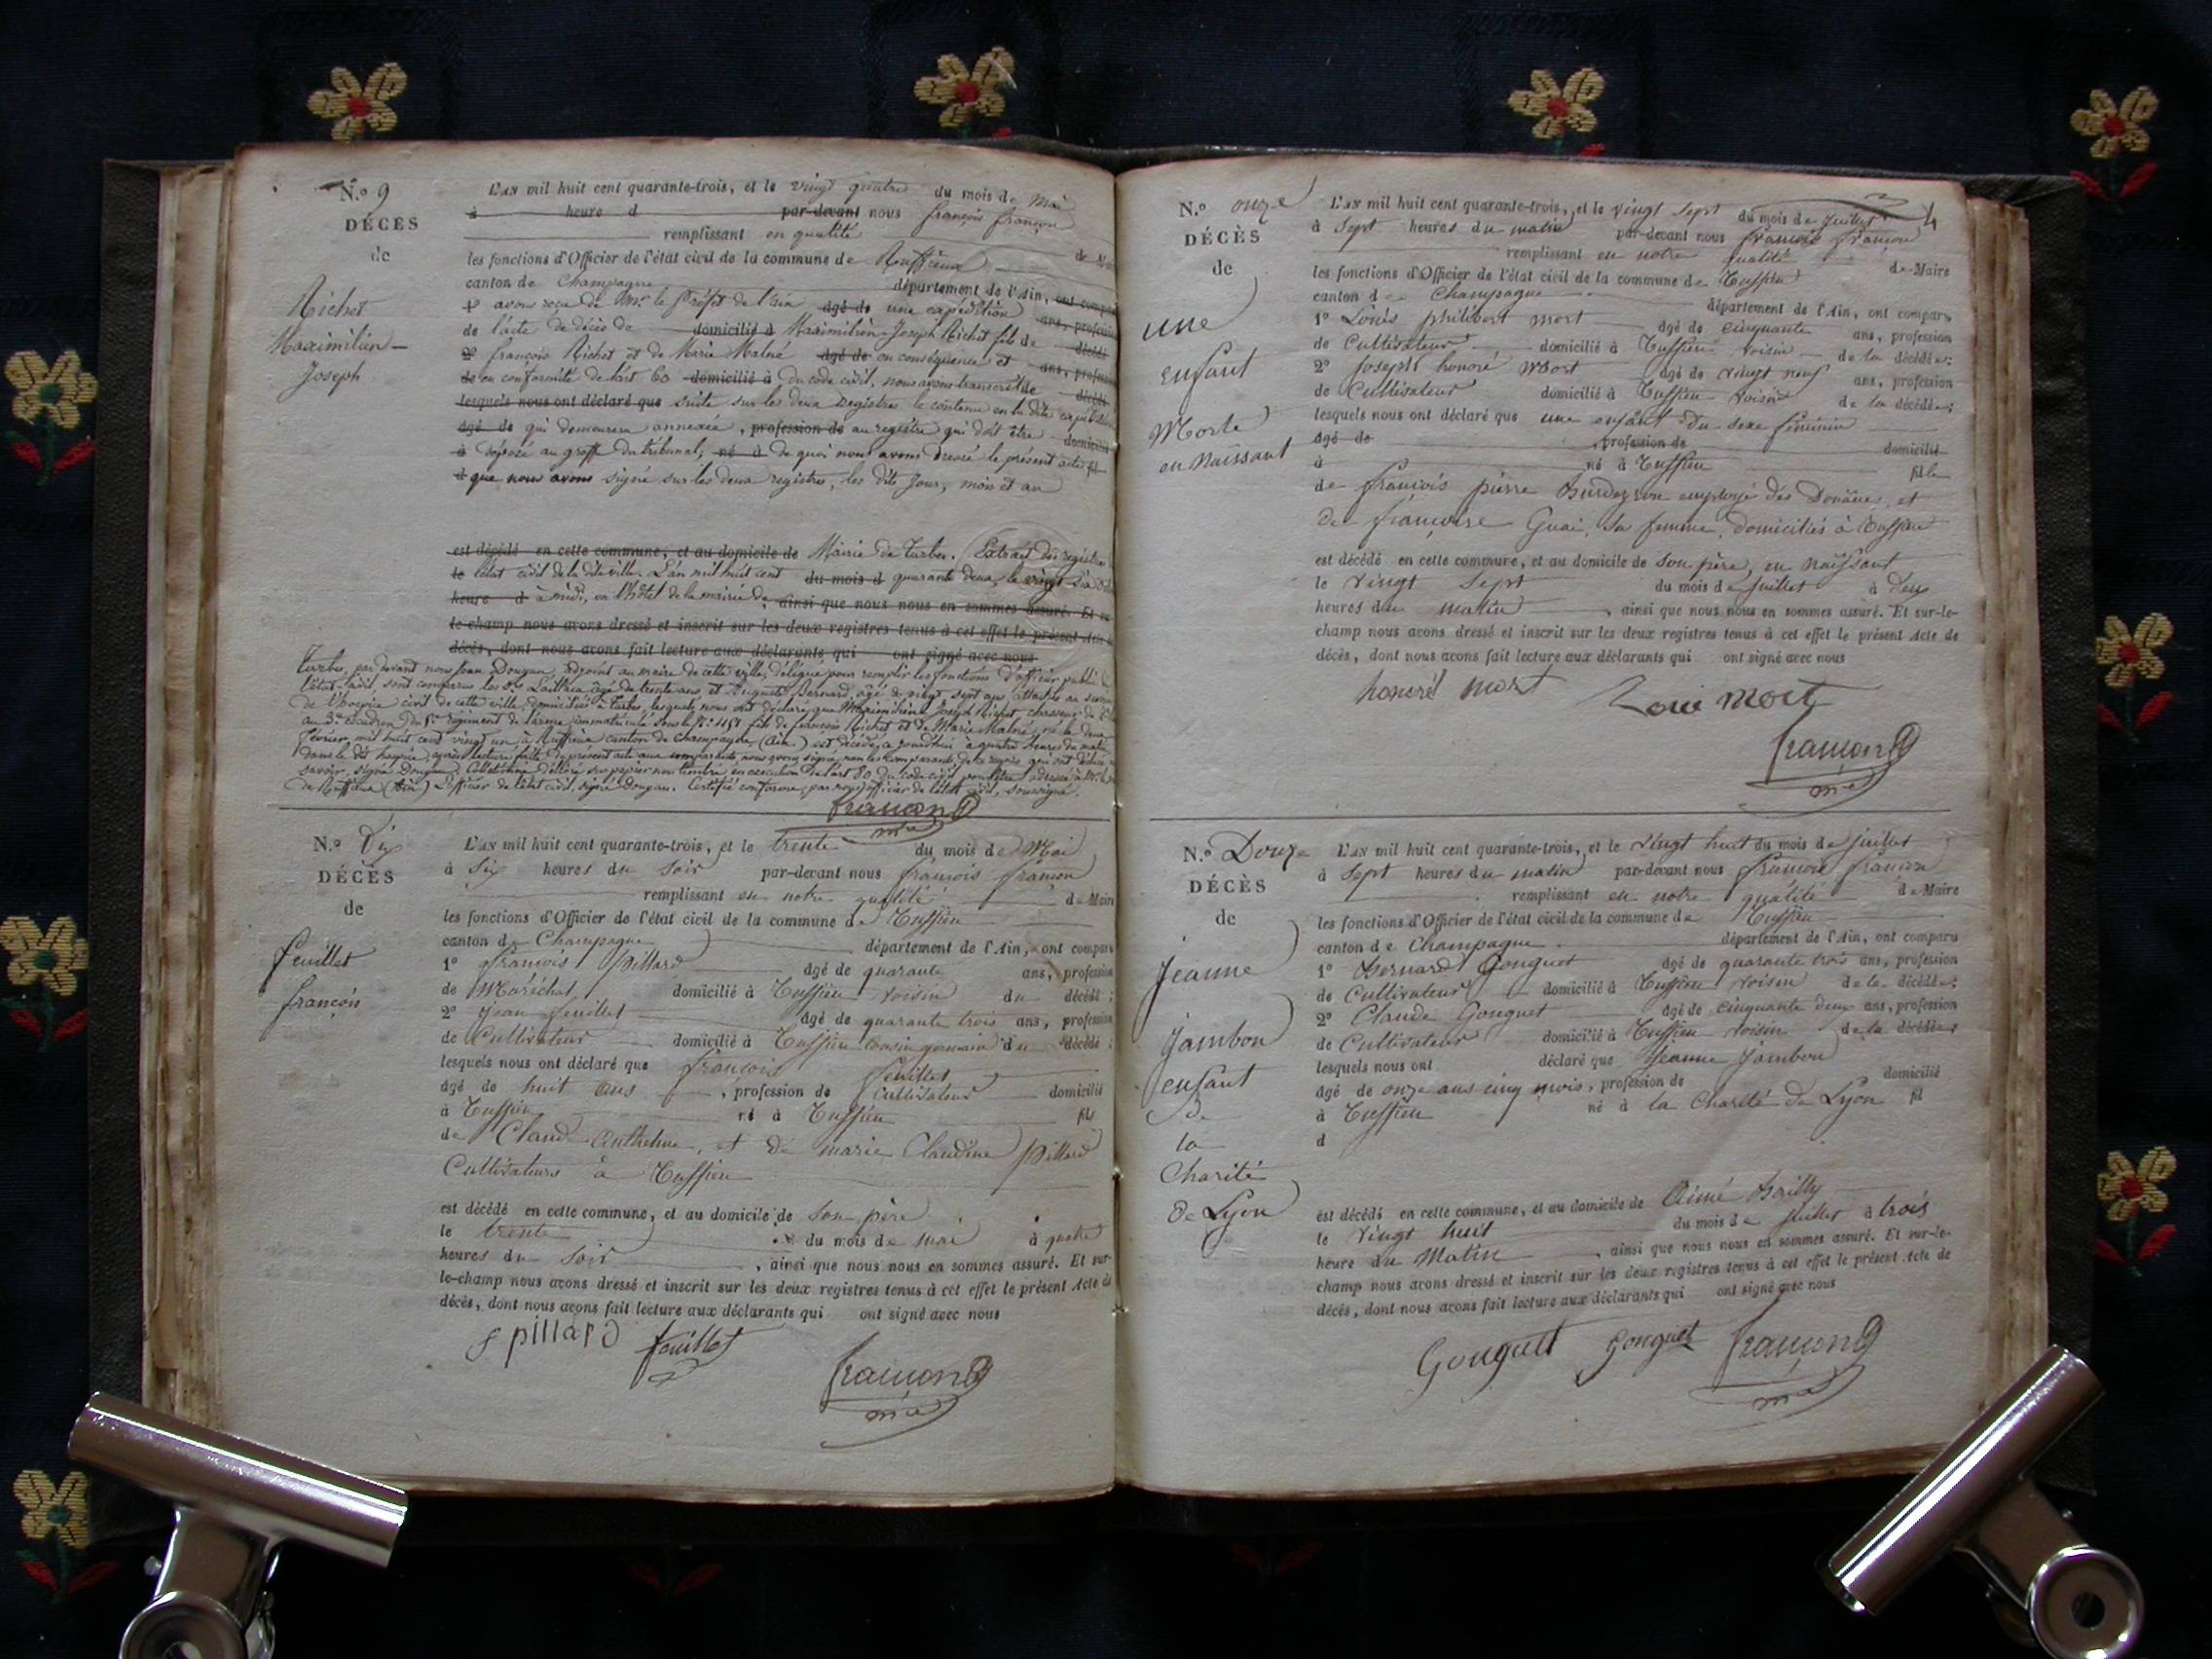 N.º 9
DÉCÈS
de
Richet
Maximilien
Joseph
L'AN mil huit cent quarante-trois, et le vingt quatre du mois de Mai
à heure d par-devant nous françois françon
remplissant en qualité
les fonctions d'Officier de l'état civil de la commune de Ruffieux
canton de Champagne département de l'Ain, ont compar
1º avons reçu de Mr. le Préfet de l'Ain agé de une expédition ans, profession
de l'acte de décès de domicilié à Maximilien Joseph Richet fils de décédé
2º françois Richet et de Marie Malné agé de en conséquence et ans, profession
de en conformité de l'art 80 domicilié à du code civil, nous avons transcrit de décédé
lesquels nous ont déclaré que suite sur les deux registres le contenu en la dite
agé de qui demeurera annexée, profession de au registre qui doit être domicilié
à déposé au greffe du tribunal, né à de quoi nous avons dressé le présent acte fil
d que nous avons signé sur les deux registres, les dits jour, mois et an
est décédé en cette commune, et au domicile de Mairie de Tarbes. Extrait des registres
le l'état civil de la dite ville. L'an mil huit cent du mois d quarante deux, le vingt six
heure d à midi, en l'hôtel de la mairie de, ainsi que nous nous en sommes assuré. Et sur
le-champ nous avons dressé et inscrit sur les deux registres tenus à cet effet le présent Acte de
décès, dont nous avons fait lecture aux déclarants qui ont signé avec nous
Tarbes, par devant nous Jean Dougan, adjoint au maire de cette ville, délégué pour remplir les fonctions d'officier public de
l'état-civil, sont comparus les Srs. agé de trente ans, et Auguste Bernard, agé de vingt sept ans, attachés au service
de l'hospice civil de cette ville, domiciliés à Tarbes, lesquels nous ont déclaré que Maximilien Joseph Richet, chasseur de
au 3e escadron du régiment de l'arme, immatriculé sous le Nº fils de françois Richet et de Marie Malné, né le deux
février mil huit cent vingt un, à Ruffieux canton de champagne (Ain) est décédé, ce jourd'hui à quatre heures du matin
dans le dit hospice, après lecture faite du présent acte aux comparants, nous avons signé, non les comparants de ce requis, qui ont déclaré
savoir, signé Dougan. délivré sur papier non timbré en exécution de l'art 80 du code civil pour être adressé à Mr. le
de Ruffieux (Ain) L'officier de l'état civil, signé Dougan. Certifié conforme, par nous officier de l'état civil, soussigné.
françon
me
N.º Dix
DÉCÈS
de
feuillet
françois
L'AN mil huit cent quarante-trois, et le trente du mois de Mai
à Six heures du soir par-devant nous françois françon
remplissant en notre qualité de Maire
les fonctions d'Officier de l'état civil de la commune de Ruffieu
canton de Champagne département de l'Ain, ont compar
1º françois pillard agé de quarante ans, profession
de Maréchal domicilié à Ruffieu voisin du décédé ;
2º jean feuillet agé de quarante trois ans, profession
de Cultivateur domicilié à Ruffieu Cousin germain du décédé ;
lesquels nous ont déclaré que françois feuillet
agé de huit ans, profession de Cultivateur domicilié
à Ruffieu né à Ruffieu fils
de Claude Anthelme, et de marie Claudine pillard
Cultivateurs à Ruffieu
est décédé en cette commune, et au domicile de son père
le trente du mois de mai à quatre
heures du soir, ainsi que nous nous en sommes assuré. Et sur-
le-champ nous avons dressé et inscrit sur les deux registres tenus à cet effet le présent Acte de
décès, dont nous avons fait lecture aux déclarants qui ont signé avec nous
f pillard feuillet
françon
me
4
N.º onze
DÉCÈS
de
une
enfant
Morte
en Naissant
L'AN mil huit cent quarante-trois, et le vingt sept du mois de juillet
à Sept heures du matin par-devant nous françois françon
remplissant en notre qualité de Maire
les fonctions d'Officier de l'état civil de la commune de Ruffieu
canton de Champagne département de l'Ain, ont comparu
1º Louis philibert mort agé de cinquante ans, profession
de Cultivateur domicilié à Ruffieu voisin de la décédée;
2º joseph honoré mort agé de vingt neuf ans, profession
de Cultivateur domicilié à Ruffieu voisin de la décédée;
lesquels nous ont déclaré que une enfant du sexe féminin
agé de, profession de domicilié
à né à Ruffieu fille
de françois pierre employé des Douanes, et
de françoise Guai, sa femme, domiciliés à Ruffieu
est décédé en cette commune, et au domicile de son père, en naissant
le vingt sept du mois de juillet à deux
heures du matin, ainsi que nous nous en sommes assuré. Et sur-le-
champ nous avons dressé et inscrit sur les deux registres tenus à cet effet le présent Acte de
décès, dont nous avons fait lecture aux déclarants qui ont signé avec nous
honoré mort Loui mort
françon
me
N.º Douze
DÉCÈS
de
jeanne
jambon
enfant
De
la
Charité
de Lyon
L'AN mil huit cent quarante-trois, et le vingt huit du mois de juillet
à Sept heures du matin par-devant nous françois françon
remplissant en notre qualité de Maire
les fonctions d'Officier de l'état civil de la commune de Ruffieu
canton de Champagne département de l'Ain, ont comparu
1º Bernard Gouguet agé de quarante trois ans, profession
de Cultivateur domicilié à Ruffieu voisin de la décédée;
2º Claude Gouguet agé de cinquante deux ans, profession
de Cultivateur domicilié à Ruffieu voisin de la décédée
lesquels nous ont déclaré que jeanne jambon
agé de onze ans cinq mois, profession de domicilié
à Ruffieu né à la Charité de Lyon fil
d
est décédé en cette commune, et au domicile de Aimé Bailly
le vingt huit du mois de juillet à trois
heure du Matin, ainsi que nous nous en sommes assuré. Et sur-le-
champ nous avons dressé et inscrit sur les deux registres tenus à cet effet le présent Acte de
décès, dont nous avons fait lecture aux déclarants qui ont signé avec nous
Gouguet Gouguet françon
me